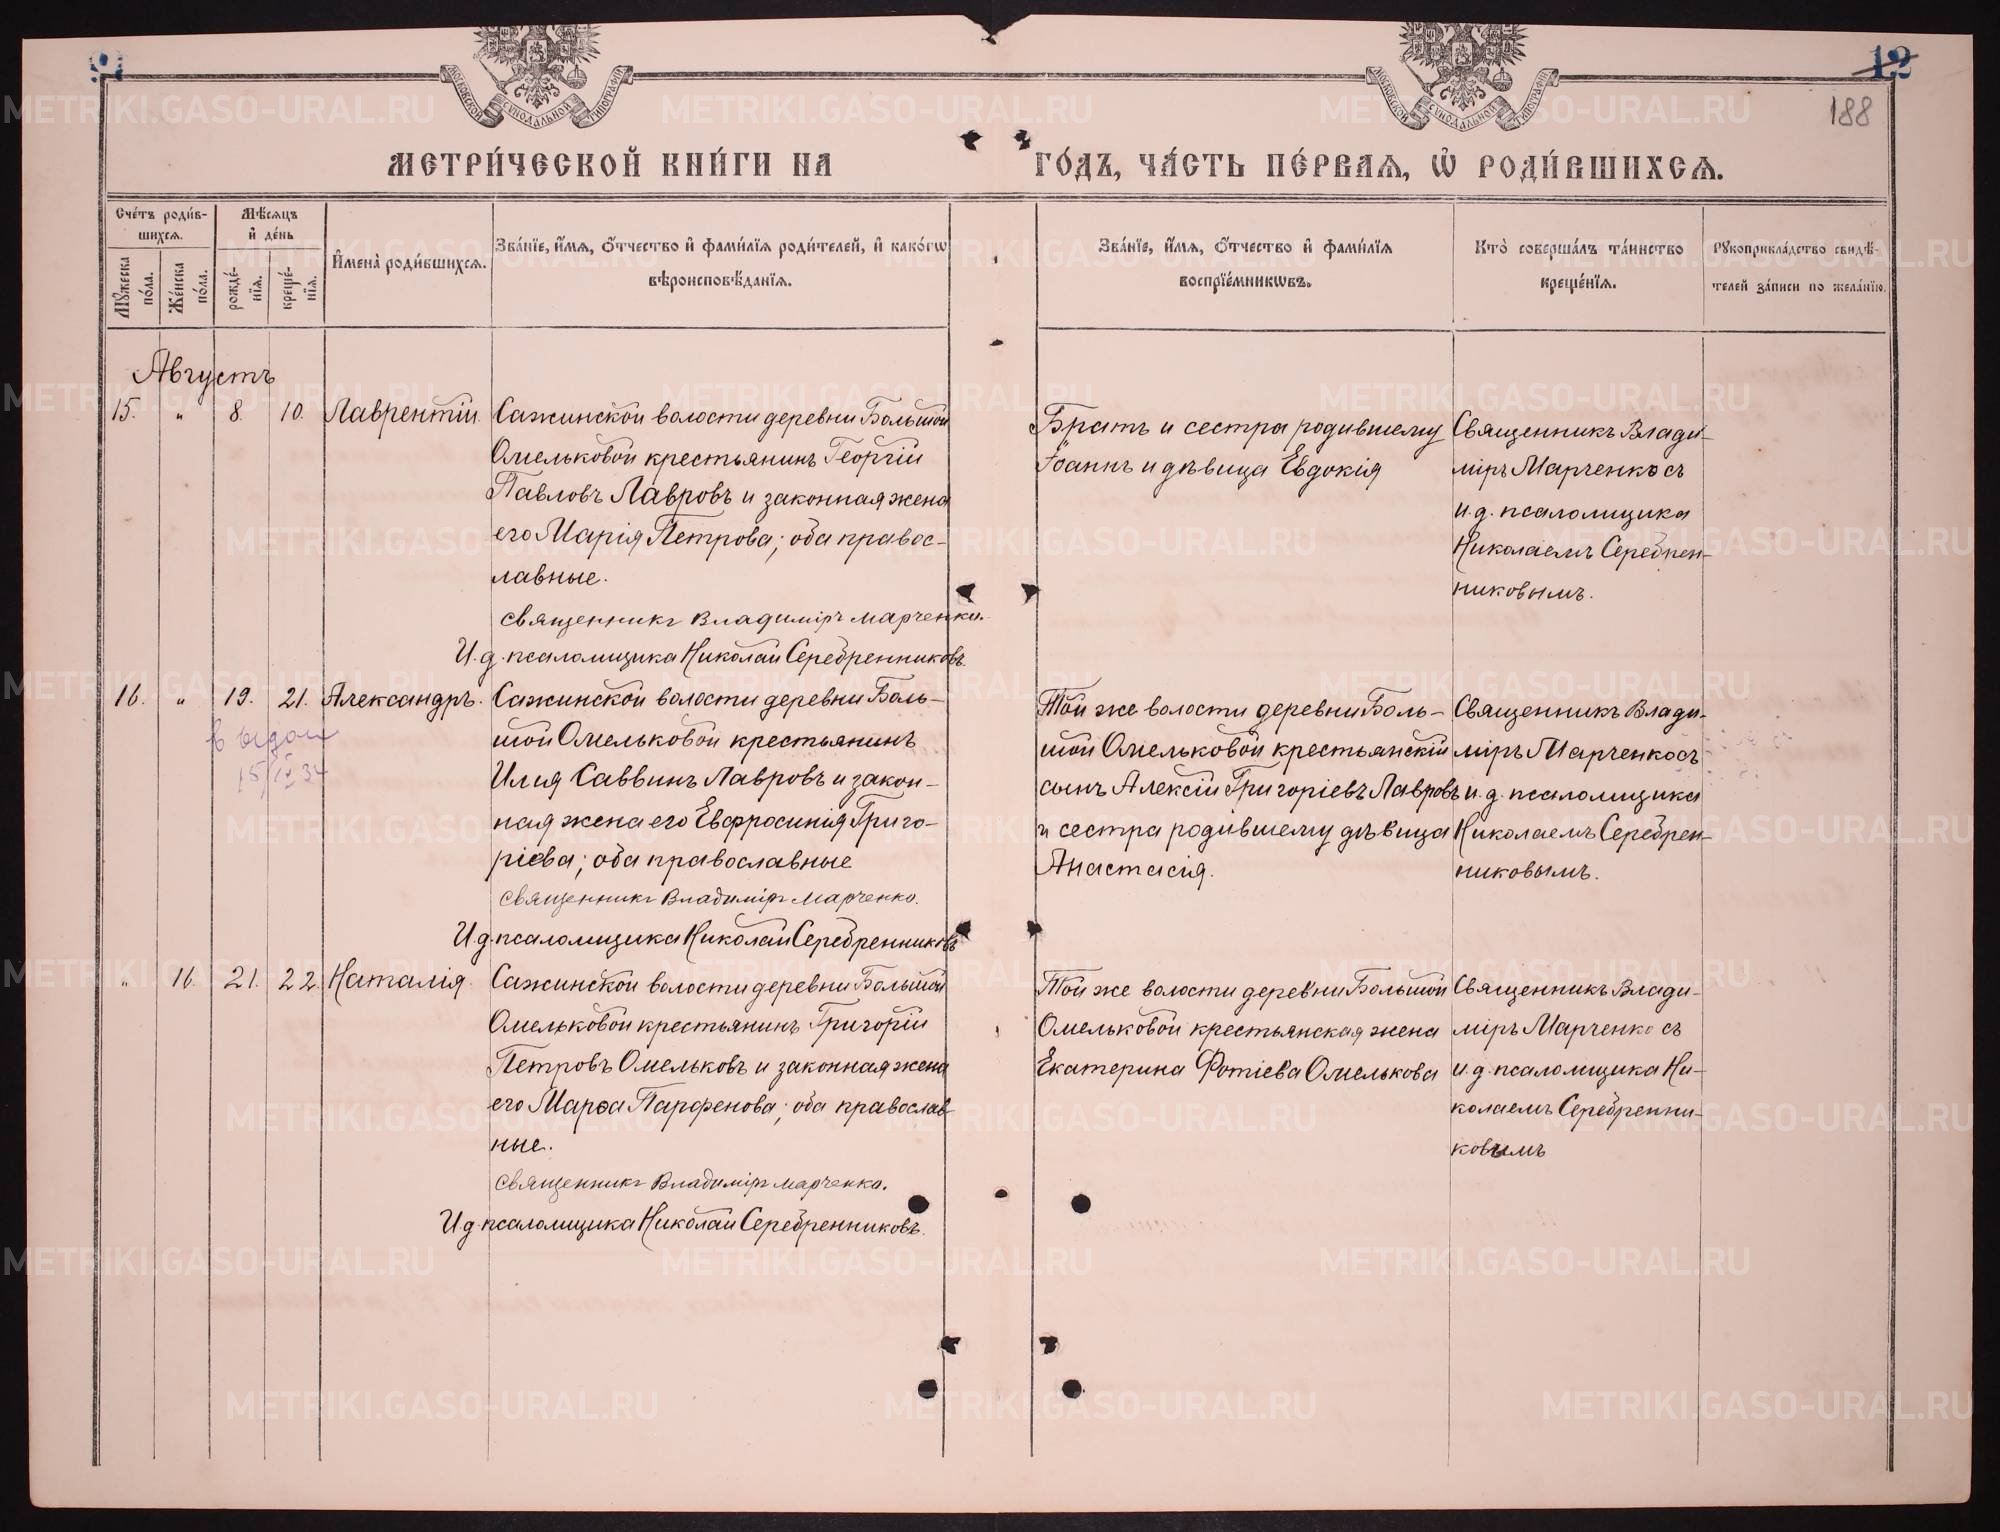 12
188
МОСКОВСКОЙ СѴНОДАЛЬНОЙ ТИПОГРАФІИ
МОСКОВСКОЙ СѴНОДАЛЬНОЙ ТИПОГРАФІИ
МЕТРИ́ЧЕСКОЙ КНИ́ГИ НА ГО́ДЪ, ЧА́СТЬ ПЕ́РВАѦ, Ѡ҆ РОДИ́ВШИХСѦ.
Сче́тъ роди́в-
шихсѧ.
Мꙋжеска
по́ла.
Же́нска
по́ла.
Мѣ́сѧцъ
и҆ де́нь
рожде́-
нїѧ.
креще́-
нїѧ.
И҆мена̀ роди́вшихсѧ.
Зва́нїе, и҆́мѧ, ѻ҆́тчество и҆ фами́лїѧ роди́телей, и҆ како́гѡ
вѣроисповѣ́данїѧ.
Зва́нїе, и҆́мѧ, ѻ҆́тчество и҆ фами́лїѧ
воспрїе́мникѡвъ.
Кто̀ соверша́лъ та́инство
креще́нїѧ.
Рꙋкоприкла́дство свидѣ́-
телей за́писи по жела́нїю.
Августъ
15. " 8. 10. Лаврентій.
Сажинской волости деревни Большой
Омельковой крестьянинъ Георгій
Павловъ Лавровъ и законная жена
его Марія Петрова; оба правос-
лавные.
Священникъ Владиміръ Марченко.
И.д. псаломщика Николай Серебренниковъ.
Братъ и сестра родившему
Іоаннъ и дѣвица Евдокія
Священникъ Влади-
міръ Марченко съ
и.д. псаломщика
Николаемъ Серебрен-
никовымъ.
16. " 19. 21. Александръ.
15/IX 34
Сажинской волости деревни Боль-
шой Омельковой крестьянинъ
Илія Саввинъ Лавровъ и закон-
ная жена его Евфросинія Григо-
ріева; оба православные
Священникъ Владиміръ Марченко.
И.д. псаломщика Николай Серебренниковъ
Той же волости деревни Боль-
шой Омельковой крестьянскій
сынъ Алексій Григоріевъ Лавровъ
и сестра родившему дѣвица
Анастасія.
Священникъ Влади-
міръ Марченко съ
и.д. псаломщика
Николаемъ Серебрен-
никовымъ.
" 16. 21. 22. Наталія.
Сажинской волости деревни Большой
Омельковой крестьянинъ Григорій
Петровъ Омельковъ и законная жена
его Марѳа Парфенова; оба православ-
ные.
Священникъ Владиміръ Марченко.
И.д. псаломщика Николай Серебренниковъ.
Той же волости деревни Большой
Омельковой крестьянская жена
Екатерина Фотіева Омелькова
Священникъ Влади-
міръ Марченко съ
и.д. псаломщика Ни-
колаемъ Серебренни-
ковымъ
METRIKI.GASO-URAL.RU